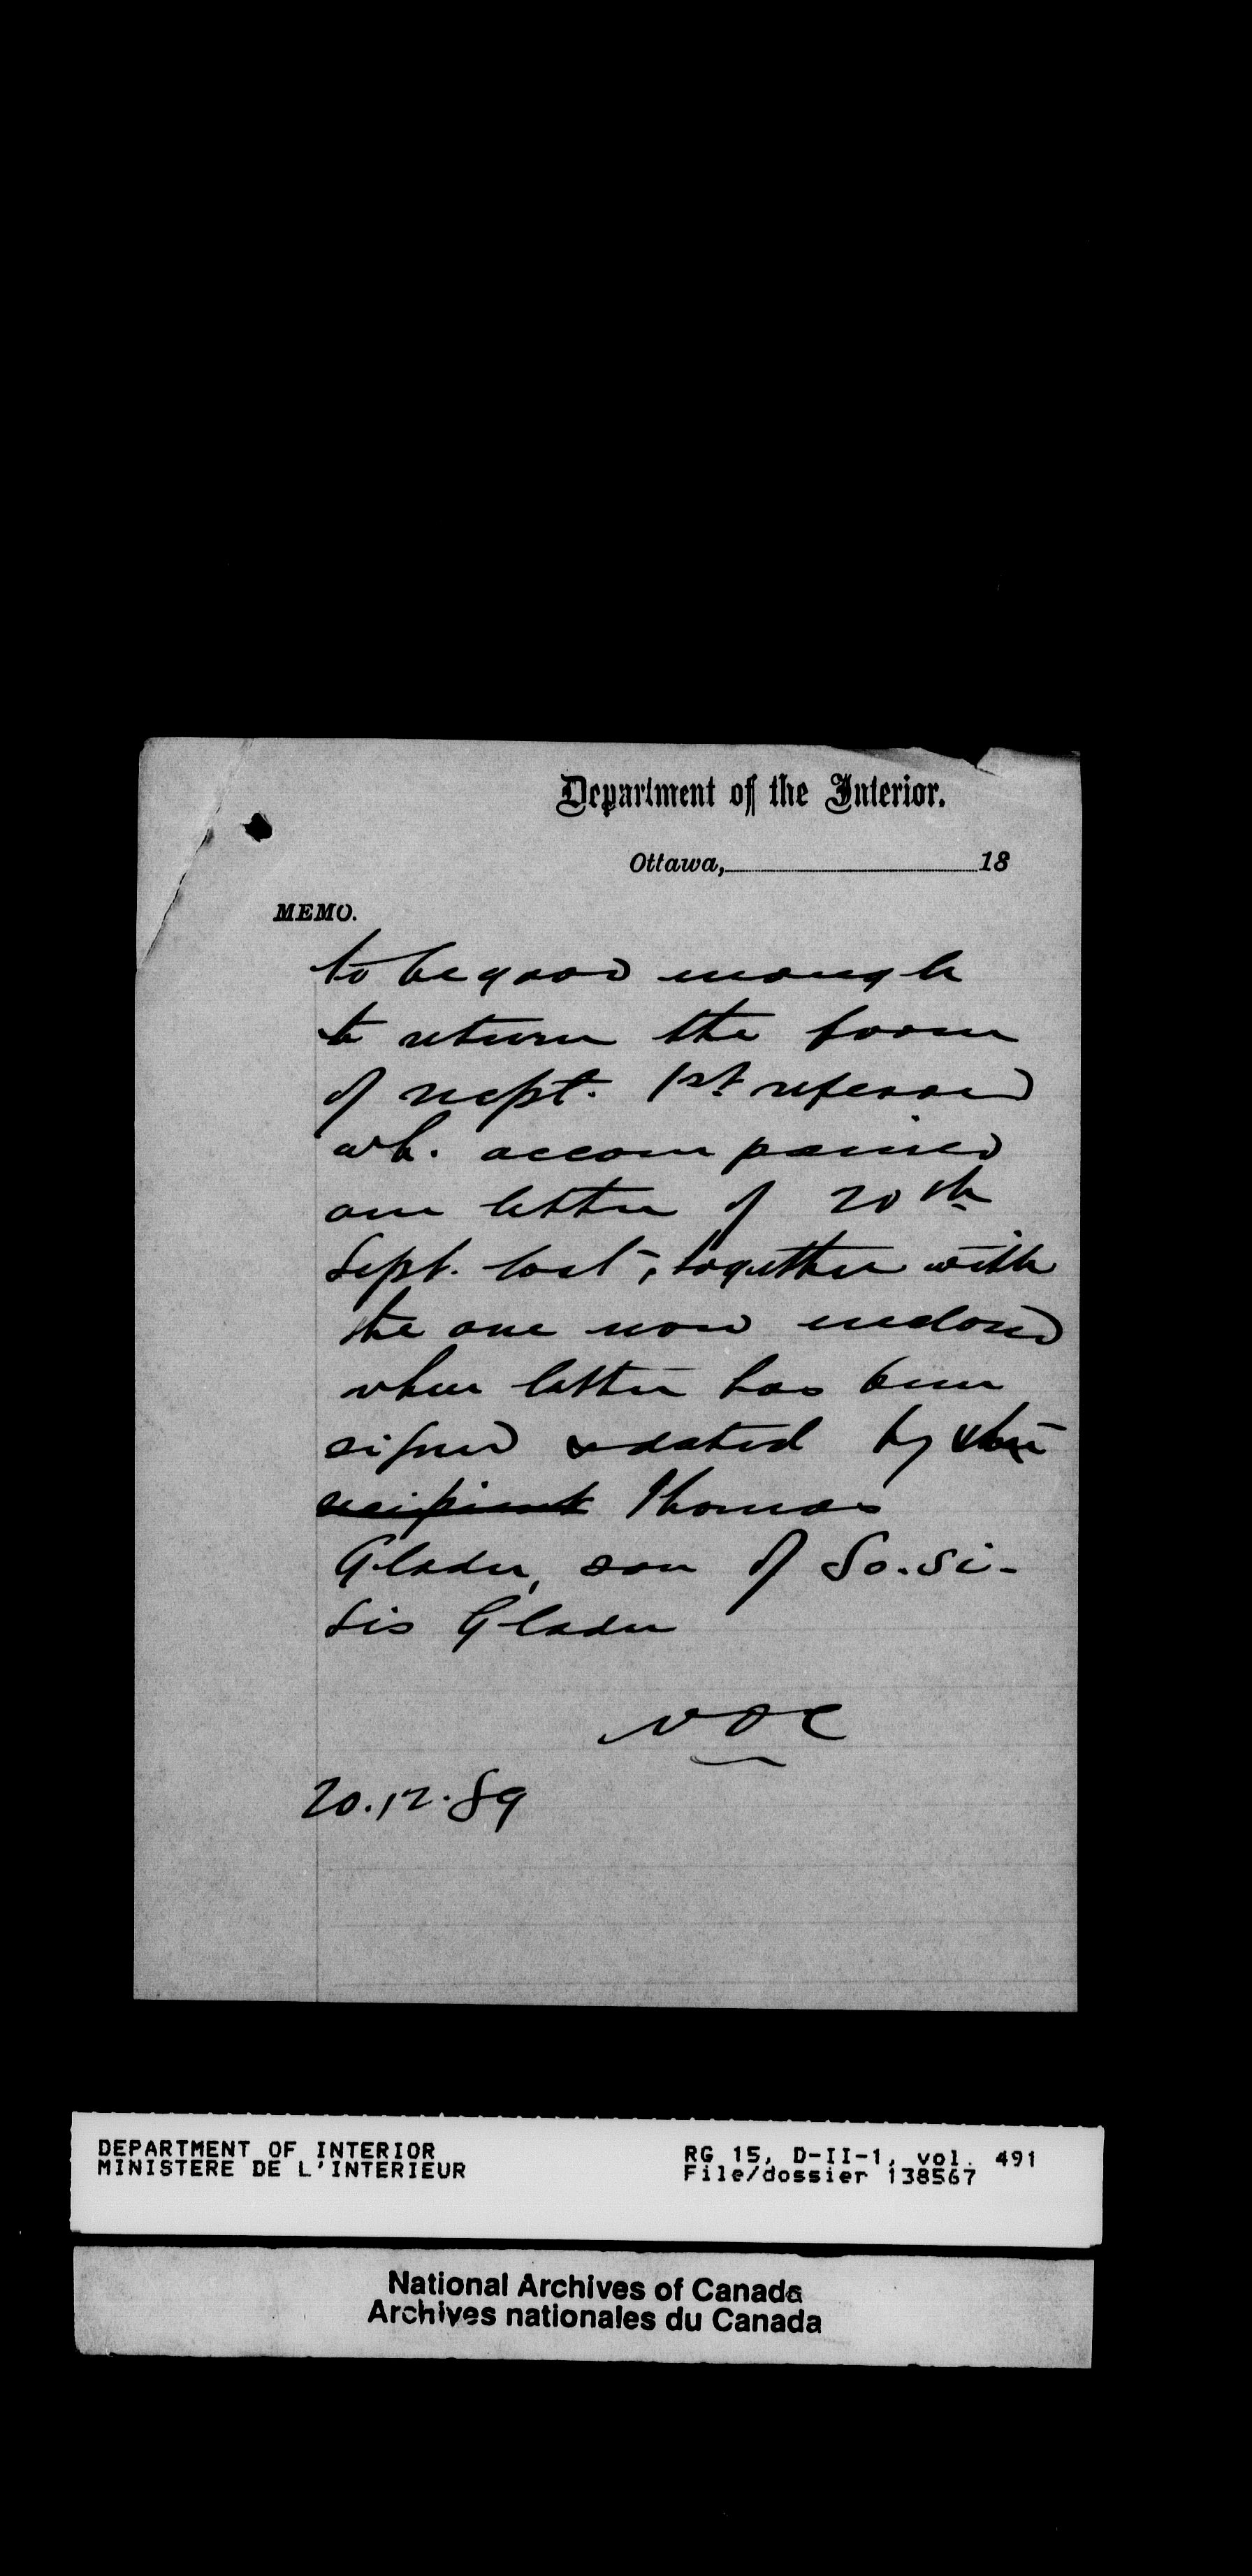 Department of the Interior.
Ottawa, 18
MEMO.
to be good enough
to return the form
of recpt. 1st referred
wh. accompanied
our letter of 20th
Sept. last, together with
the one now enclosed
when latter has been
signed & dated by the
recipient Thomas
Gladu, son of So.si-
sis Gladu
20.12.89
DEPARTMENT OF INTERIOR
MINISTERE DE L'INTERIEUR
RG 15, D-II-1, vol. 491
File/dossier 138567
National Archives of Canada
Archives nationales du Canada